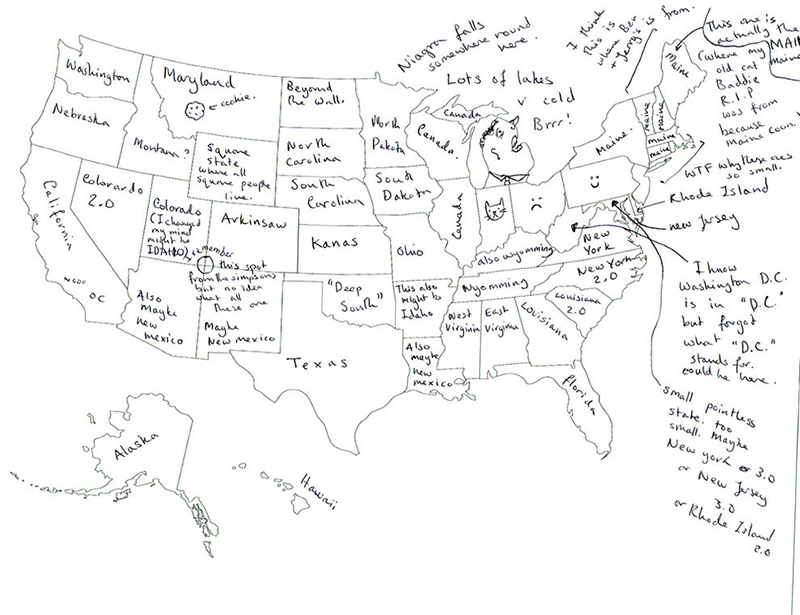 Niagra falls
somewhere round
here.
I think
this is
where Ben
+ Jerry's is
from.
This one is
actually the
MAIN
maine
(where my
old cat
Baddie
R.I.P
was from
because
maine coon.
Lots of lakes
v cold
Brrr!
Washington
Maryland
cookie.
Beyond
the wall.
Nebraska
Montana?
Square
state
where all
square people
live.
North
Carolina
North
Dakota
Canada
Canada.
Maine
maine
maine
Maine.
maine
maine
WTF why these ones
so small.
California
Colorardo
2.0
Colorado
(I changed
my mind
might be
IDAHO)
Arkinsaw
South
Carolina
South
Dakota
Canada
Rhode Island
new Jersey
Kanas
Ohio
also wyomming
New
York
remember
this spot
from the simpsons
but no idea
what all
these are
OC
Also
Maybe
new
mexico
Maybe
New mexico
"Deep
South"
This also
might be
Idaho
Wyomming
New York
2.0
West
Virginia
East
Virginia
Louisiana
Louisiana
2.0
I know
Washington D.C.
is in "D.C"
but forgot
what "D.C."
stands for.
could be here.
Texas
Also
maybe
new
mexico
florida
small pointless
state. too
small. Maybe
New york 3.0
or New Jersey
3.0
or Rhode Island
2.0
Alaska
Hawaii